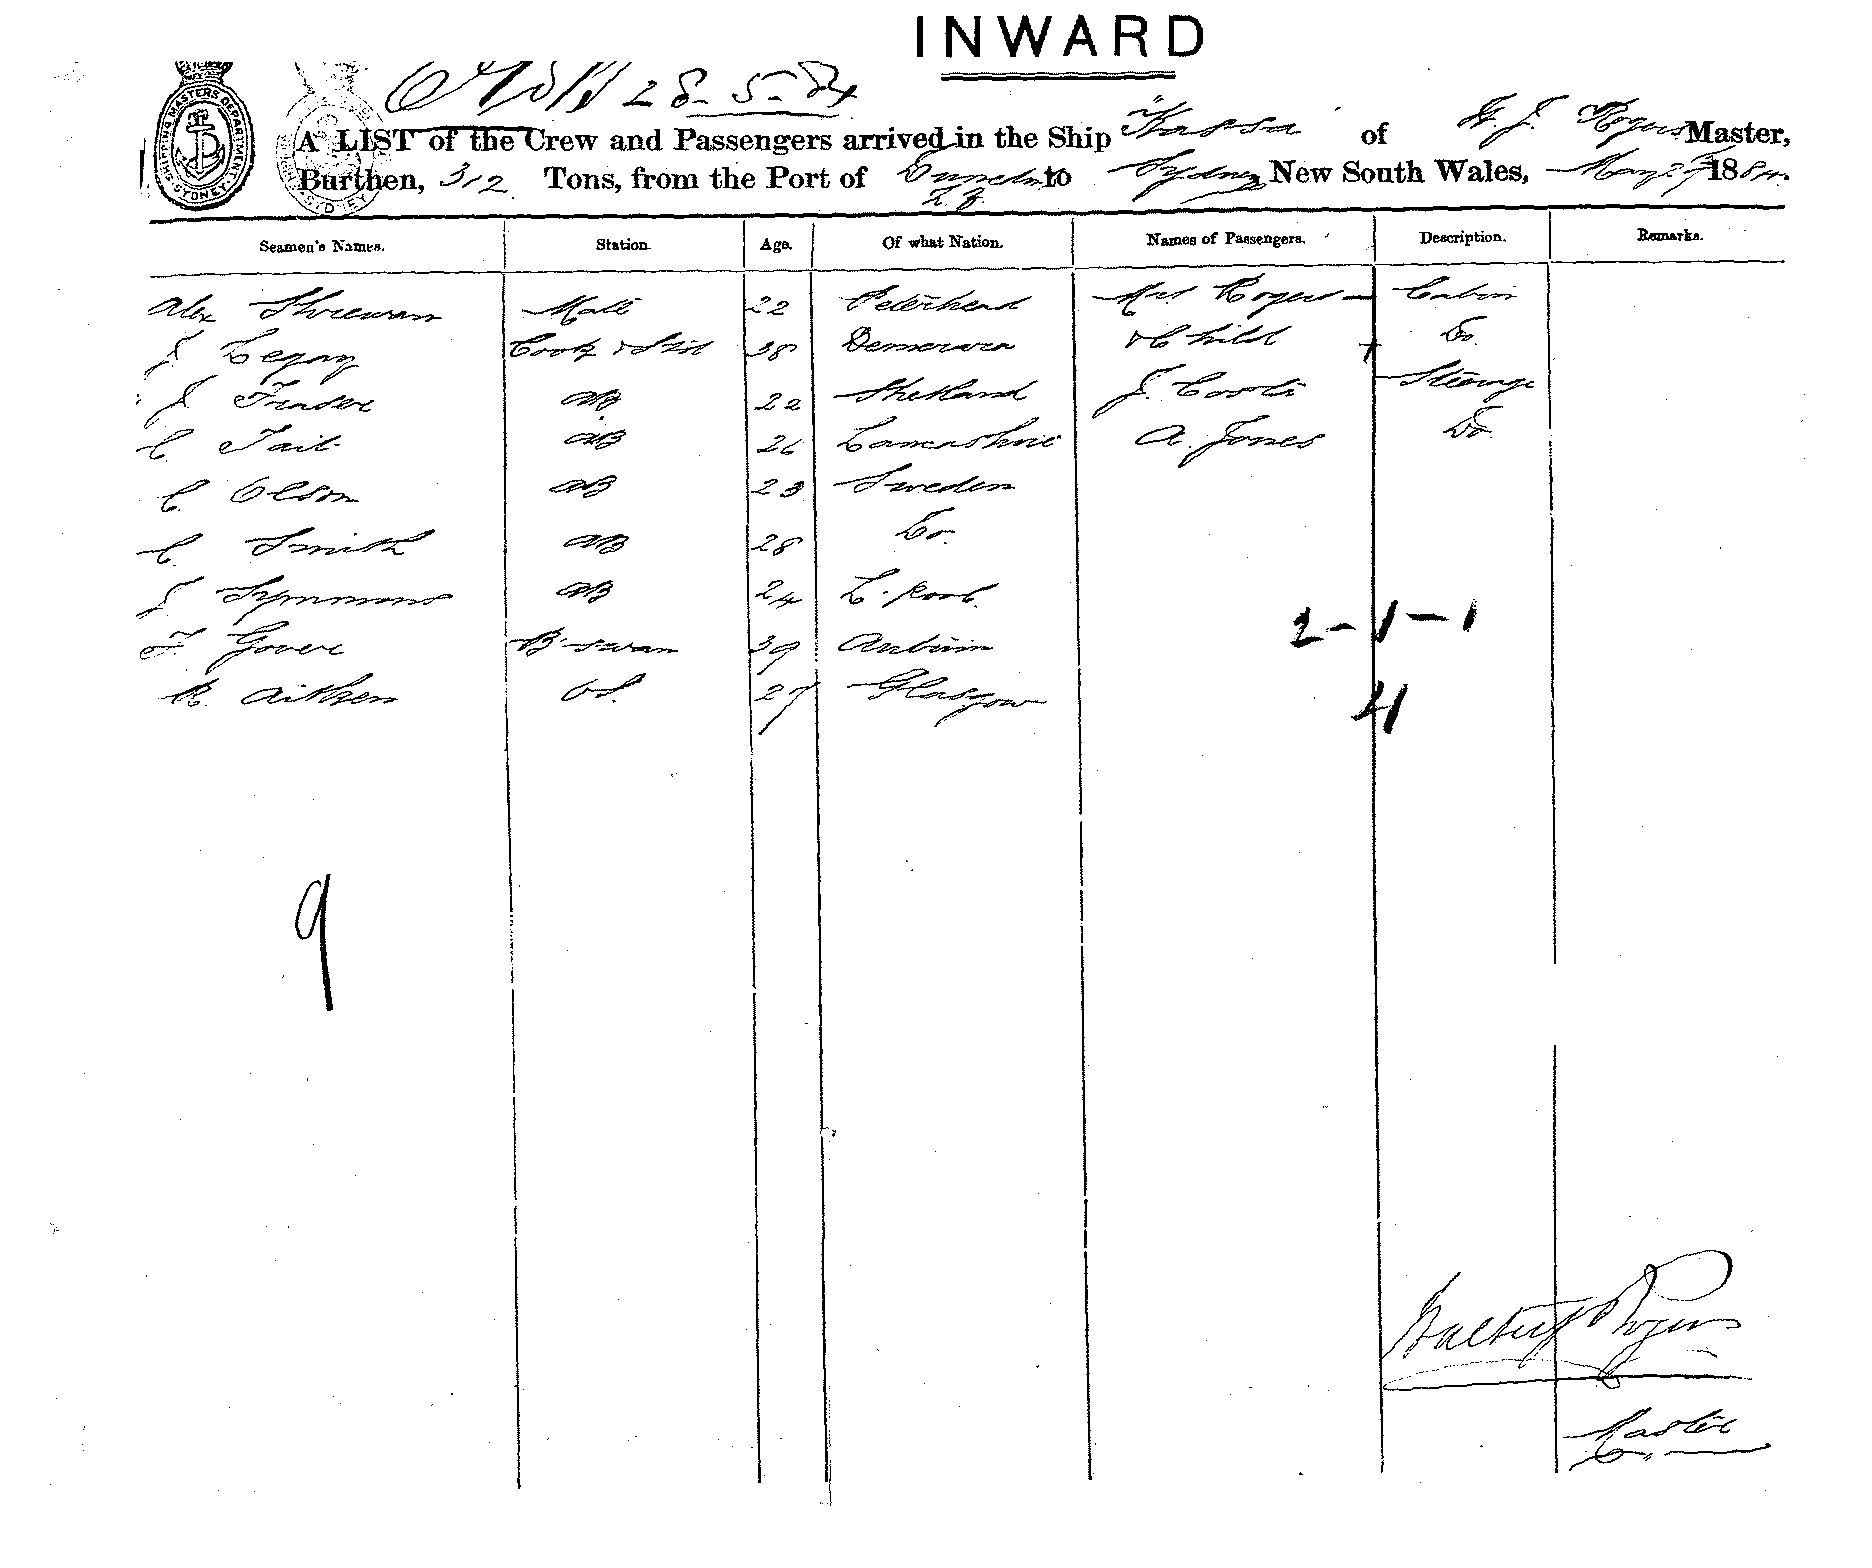 INWARD
28-5-84
SHIPPING MASTERS DEPARTMENT SYDNEY
A LIST of the Crew and Passengers arrived in the Ship "Kassa of W. J. Rogers Master,
Burthen, 312 Tons, from the Port of Dunedin N.Z. to Sydney New South Wales, May 27 1884.
Seamen's Names. Station. Age. Of what Nation. Names of Passengers. Description. Remarks.
Alex Mate 22 Peterhead Mrs Rogers Cabin
J. Legay Cook & Std 38 Demerara & Child Do.
J. Fraser AB 22 Shetland J. Coots Steerage
C. Tait AB 26 A. Jones Do.
C. Olson AB 23 Sweden
C. Smith AB 28 Do.
J. Symmons AB 24 L. Pool.
F. Gover B-swan 39 Antrim
R. Aitken OS. 27 Glasgow
2-1-1
4
9
Walter J Rogers
Master